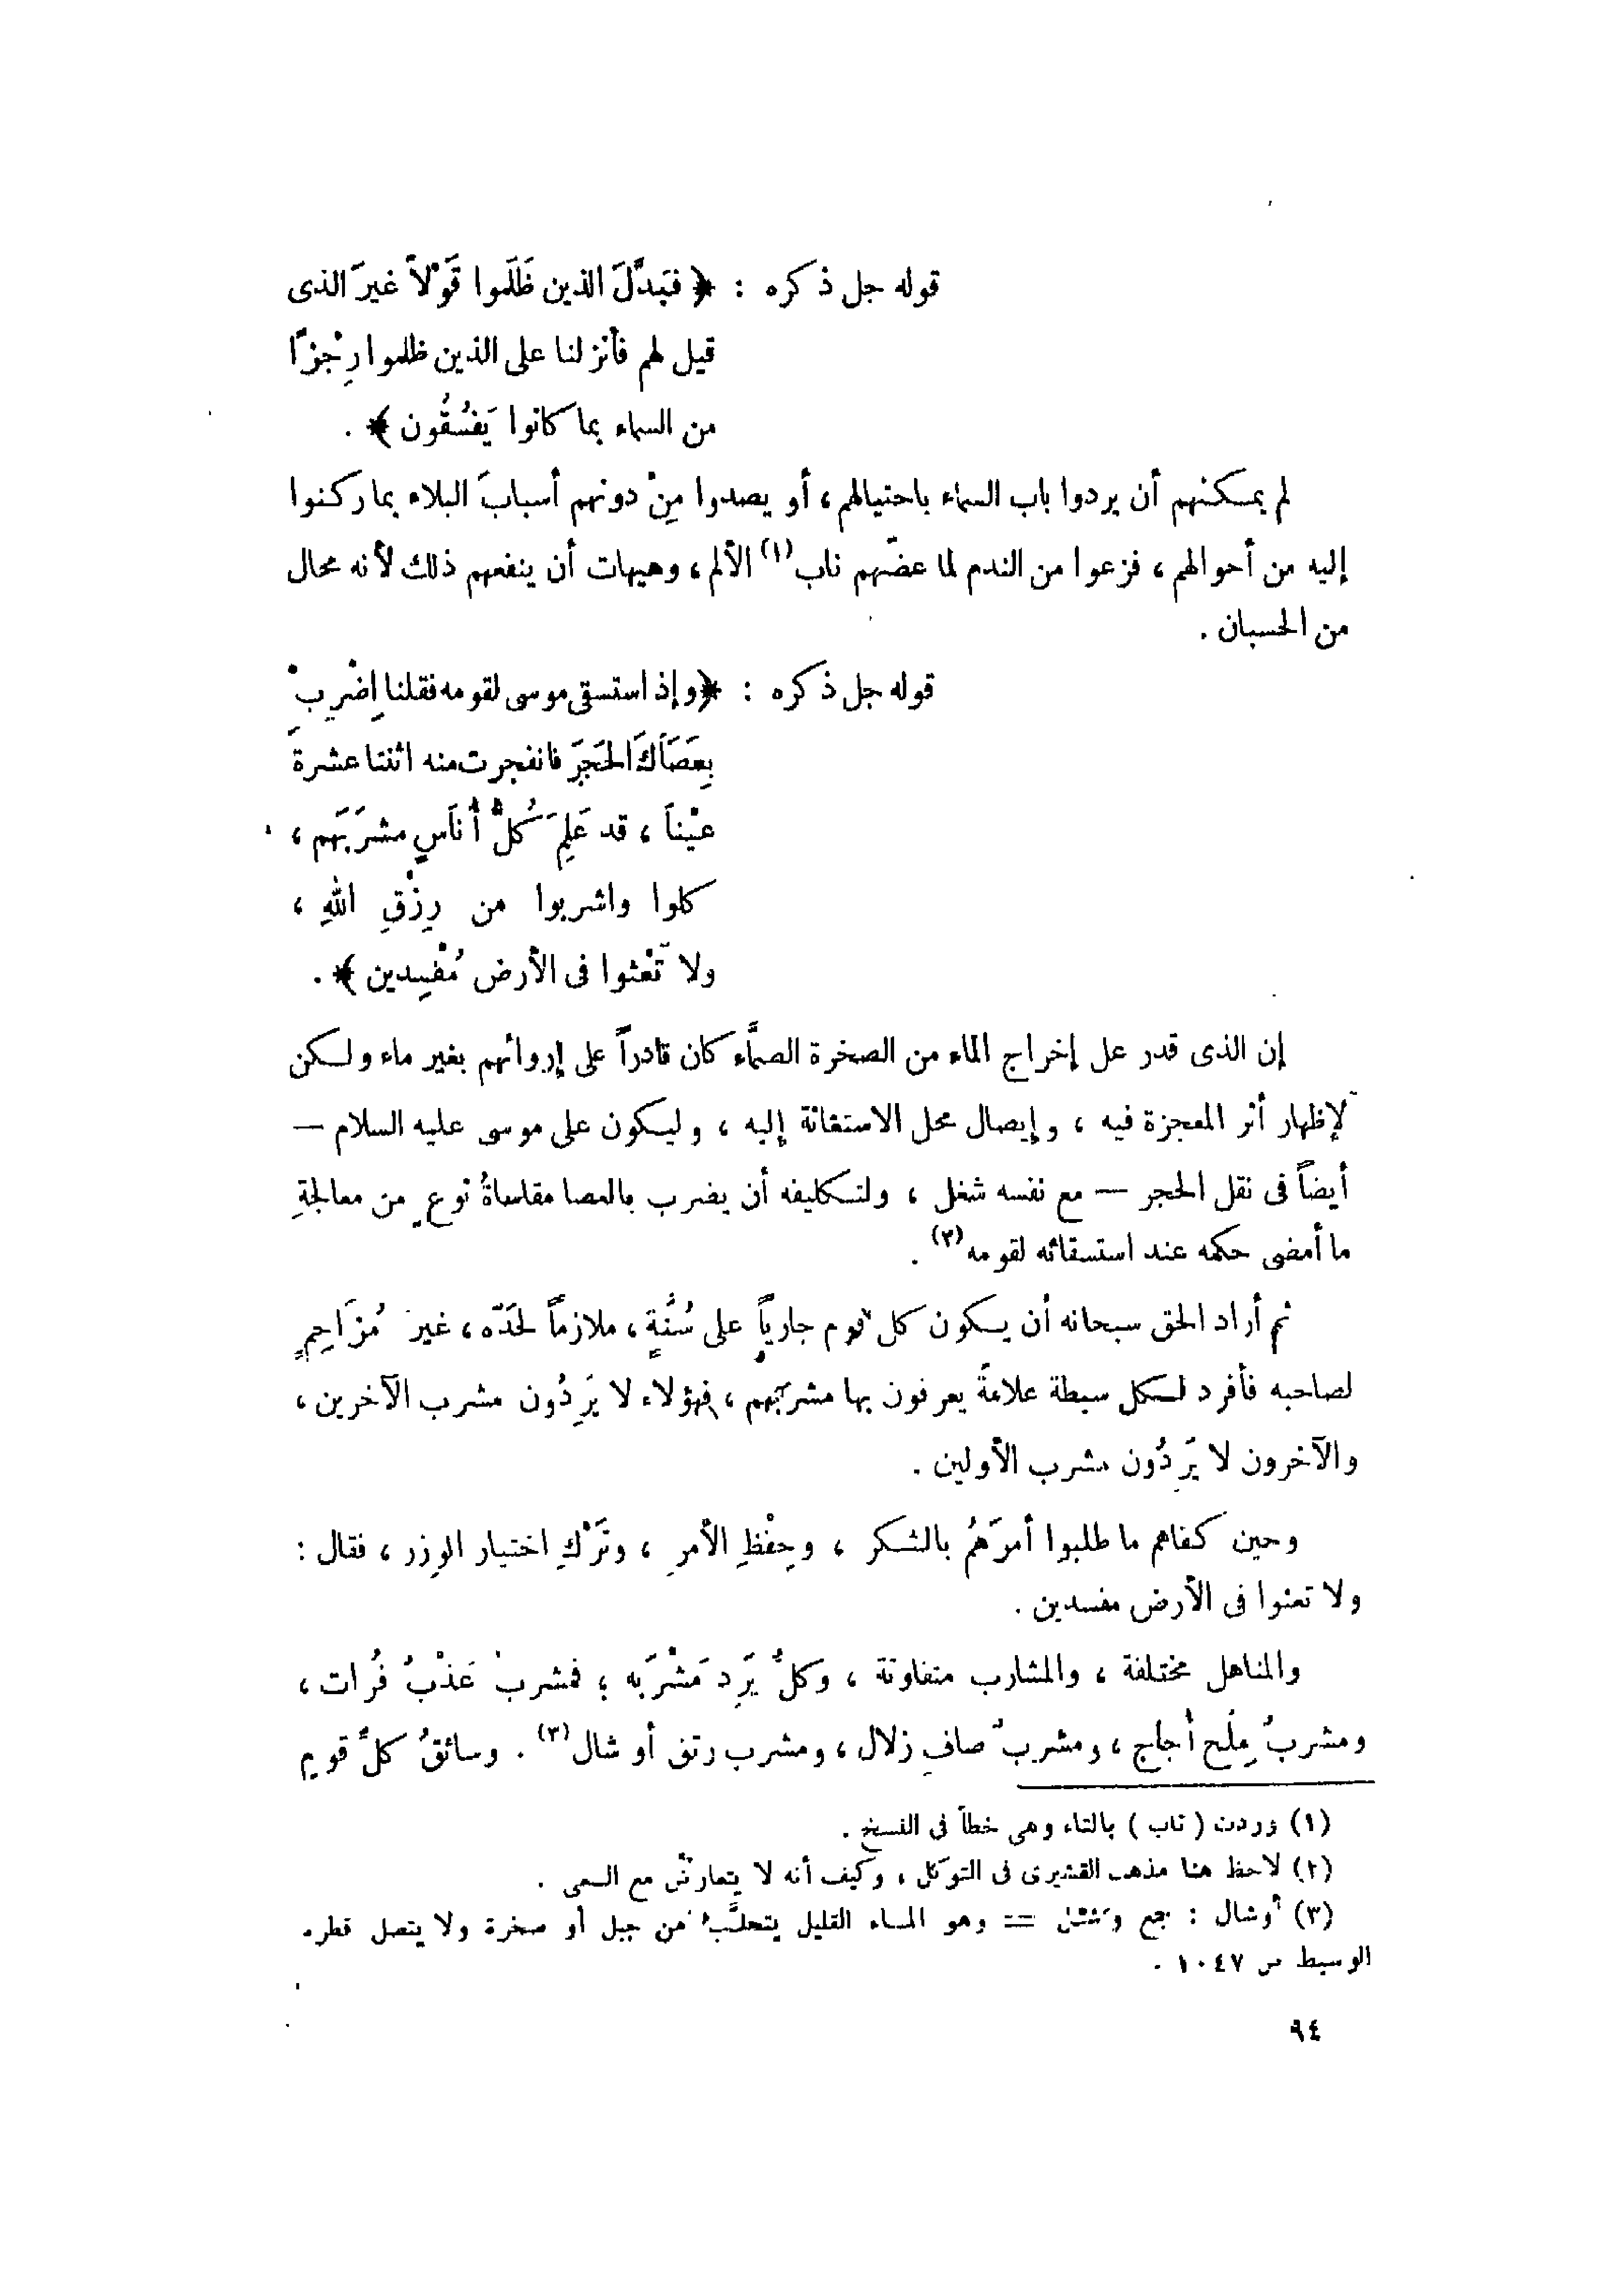 قوله جل ذكره : ﴿ فبَدلَّ الذين ظَلَموا قَوْلاً غيرَ الذى
قيل لهم فأنزلنا على الذين ظلموا رِجْزًا
من السماء بما كانوا يَفسُقُون ﴾ .
لم يمكنهم أن يردوا باب السماء باحتيالهم ، أو يصدوا مِنْ دونهم أسبابَ البلاء بما ركنوا
إليه من أحوالهم ، فزعوا من الندم لما عضّهم ناب (١) الألم ، وهيهات أن ينفعهم ذلك لأنه محال
من الحسبان .
قوله جل ذكره : ﴿وإذ استسقى موسى لقومه فقلنا اِضْرِبْ
بِعَصَاكَ الحَجَرَ فانفجرت منه اثنتا عشرةَ
عيْناً ، قد عَلِمَ كُلُّ أُنَاسٍ مشرَبَهم ،
كلوا واشربوا من رِزْقِ اللهِ ،
ولا تَعْثوا فى الأرض مُفْسِدين ﴾ .
إن الذى قدر عل إخراج الماء من الصخرة الصمَّاء كان قادراً على إروائهم بغير ماء ولكن
لإظهار أثر المعجزة فيه ، وإيصال محل الاستغاثة إليه ، وليكون على موسى عليه السلام —
أيضاً فى نقل الحجر — مع نفسه شغل ، ولتكليفه أن يضرب بالعصا مقاساةُ نوعٍ من معالجةِ
ما أمضى حكمه عند استسقائه لقومه (٢) .
ثم أراد الحق سبحانه أن يكون كل قوم جارياً على سُنَّةٍ ، ملازماً لحَدّه ، غيرَ مُزَاحِمٍ
لصاحبه فأفرد لكل سبطة علامةً يعرفون بها مشربَهم ، فهؤلاء لا يَرِدُون مشرب الآخرين ،
والآخرون لا يَرِدُون مشرب الأولين .
وحين كفاهم ما طلبوا أمرَهُم بالشكر ، وحِفْظِ الأمرِ ، وتَرْكِ اختيار الوِزر ، فقال :
ولا تعثوا فى الأرض مفسدين .
والمناهل مختلفة ، والمشارب متفاوتة ، وكلٌّ يَرِد مَشْرَبه ؛ فمشربٌ عَذْبٌ فُرات ،
ومشربٌ مِلْح أُجاج ، ومشربٌ صافٍ زلال ، ومشرب رتق أوشال (٣) . وسائقُ كلِّ قومٍ
(١) وردت ( تاب ) بالتاء وهى خطأ فى النسخ .
(٢) لاحظ هنا مذهب القشيرى فى التوكل ، وكيف أنه لا يتعارض مع السعى .
(٣) أوشال : جمع وَشَل == وهو الماء القليل يتحلَّب من جبل أو صخرة ولا يتصل قطره
الوسيط ص ١٠٤٧ .
٩٤